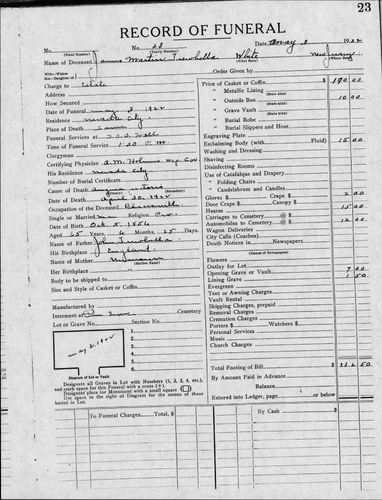 23
RECORD OF FUNERAL
No.
(Total Number)
No. 23
(Yearly Number)
Date May 3 1922
Name of Deceased James Martin Trewhella White New Jersey
(What Race) (Where Born)
Wife—Widow
Son—Daughter of
Order Given by
Charge to Estate
Address
How Secured
Date of Funeral May 3 1922
Residence Nevada City
Place of Death Same
Funeral Services at I.O.O.F. Hall
Time of Funeral Service 1-30 P.M.
Clergyman
Certifying Physician
His Residence Nevada City
Number of Burial Certificate
Cause of Death Angina
(Primary) (Secondary)
Date of Death April 30 1922
Occupation of the Deceased Blacksmith
Single or Married Religion
Date of Birth Oct 5, 1856
Aged 65 Years, 6 Months, 25 Days
Name of Father John Trewhella
His Birthplace England
Name of Mother
(Maiden Name)
Her Birthplace "
Body to be shipped to
Size and Style of Casket or Coffin
Manufactured by
Interment at Pine Grove Cemetery
Lot or Grave No. Section No.
1.
2.
3.
4.
5.
6.
May 3, 1922
Diagram of Lot or Vault
Designate all Graves in Lot with Numbers (1, 2, 3, 4, etc.),
and mark space for this Funeral with a cross (+).
Designate place for Monument with a small square
Use space to the right of Diagram for names of those
buried in Lot.
Price of Casket or Coffin $ 190 00
" Metallic Lining
(State kind)
" Outside Box 10 00
(State kind)
" Grave Vault
(State kind)
" Burial Robe
" Burial Slippers and Hose
Engraving Plate
Embalming Body (with Fluid) 15 00
Washing and Dressing
Shaving
Disinfecting Rooms
Use of Catafalque and Drapery
" Folding Chairs
" Candelabrum and Candles
Gloves $ Crape $ 2 00
Door Crape $ Canopy $
Hearse 15 00
Carriages to Cemetery @ $
Automobiles to Cemetery @ $ 12 00
Wagon Deliveries
City Calls (Coaches)
Death Notices in Newspapers
(Names of Newspapers)
Flowers
Outlay for Lot
Opening Grave or Vault 7 00
Lining Grave 1 50
Evergreen
Tent or Awning Charges
Vault Rental
Shipping Charges, prepaid
Removal Charges
Cremation Charges
Porters $ Watchers $
Personal Services
Music
Church Charges
Total Footing of Bill $ 50
By Amount Paid in Advance
Balance
Entered into Ledger, page or below
To Funeral Charges Total, $
By Cash $